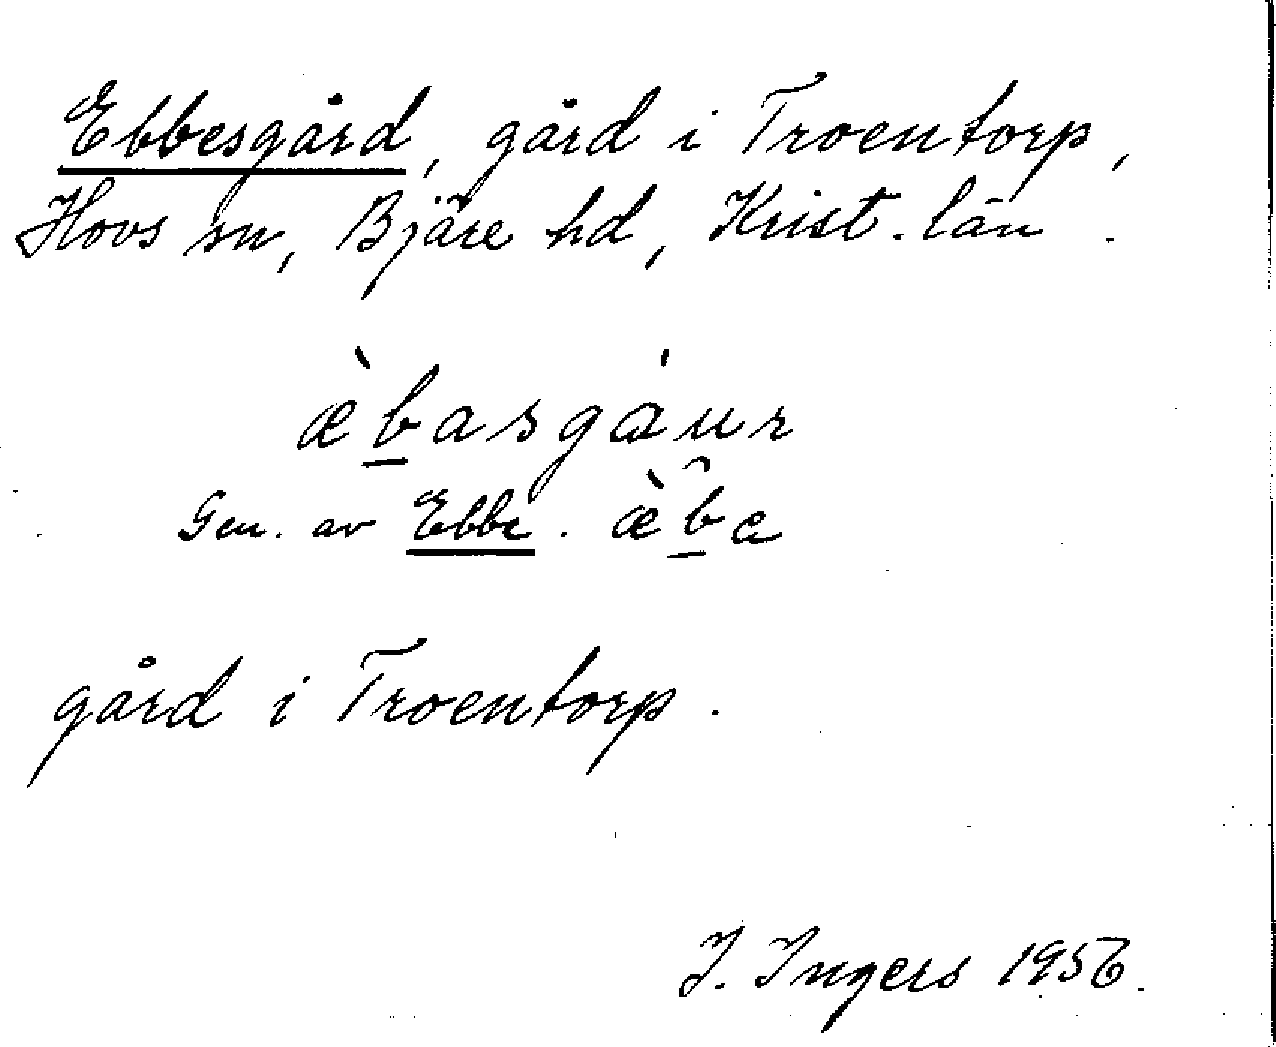 Ebbesgård, gård i Troentorp,
Hovs sn, Bjäre hd, Krist. län.
æ̀basgáur
Gen. av Ebbe. æ̀ba
gård i Troentorp.
I. Ingers 1956.